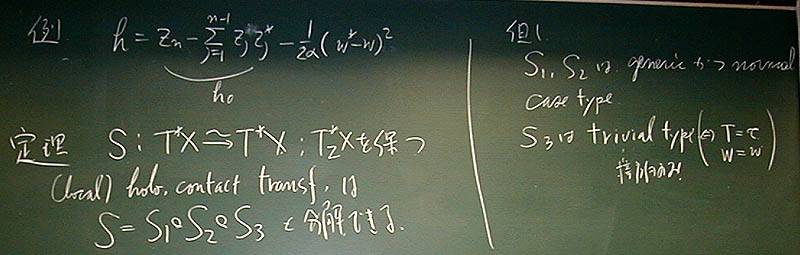 例 h = z_n - \sum_{j=1}^{n-1} z_j z_j^* - \frac{1}{2\alpha}(w^* - w)^2
h_0
定理 S : T^*X ≃ T^*X ; T_Z^*X を保つ
(local) holo. contact transf. は
S = S_1 ∘ S_2 ∘ S_3 と分解できる.
但し
S_1, S_2 は generic かつ normal
case type
S_3 は trivial type (⇔ T = τ
W = w)